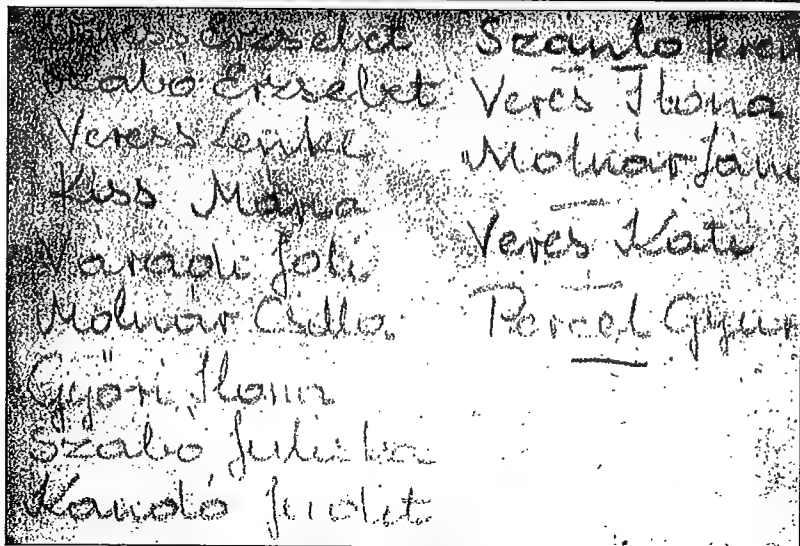 Erzsébet
Szabó Erzsébet
Veress Lenke
Kiss Mária
Váradi Joli
Molnár Csilla
Győri Ilona
Szabó Juliska
Kandó Judit
Szántó Teren
Veres Ilona
Molnár Ján
Veres Kati
Percel Gyur